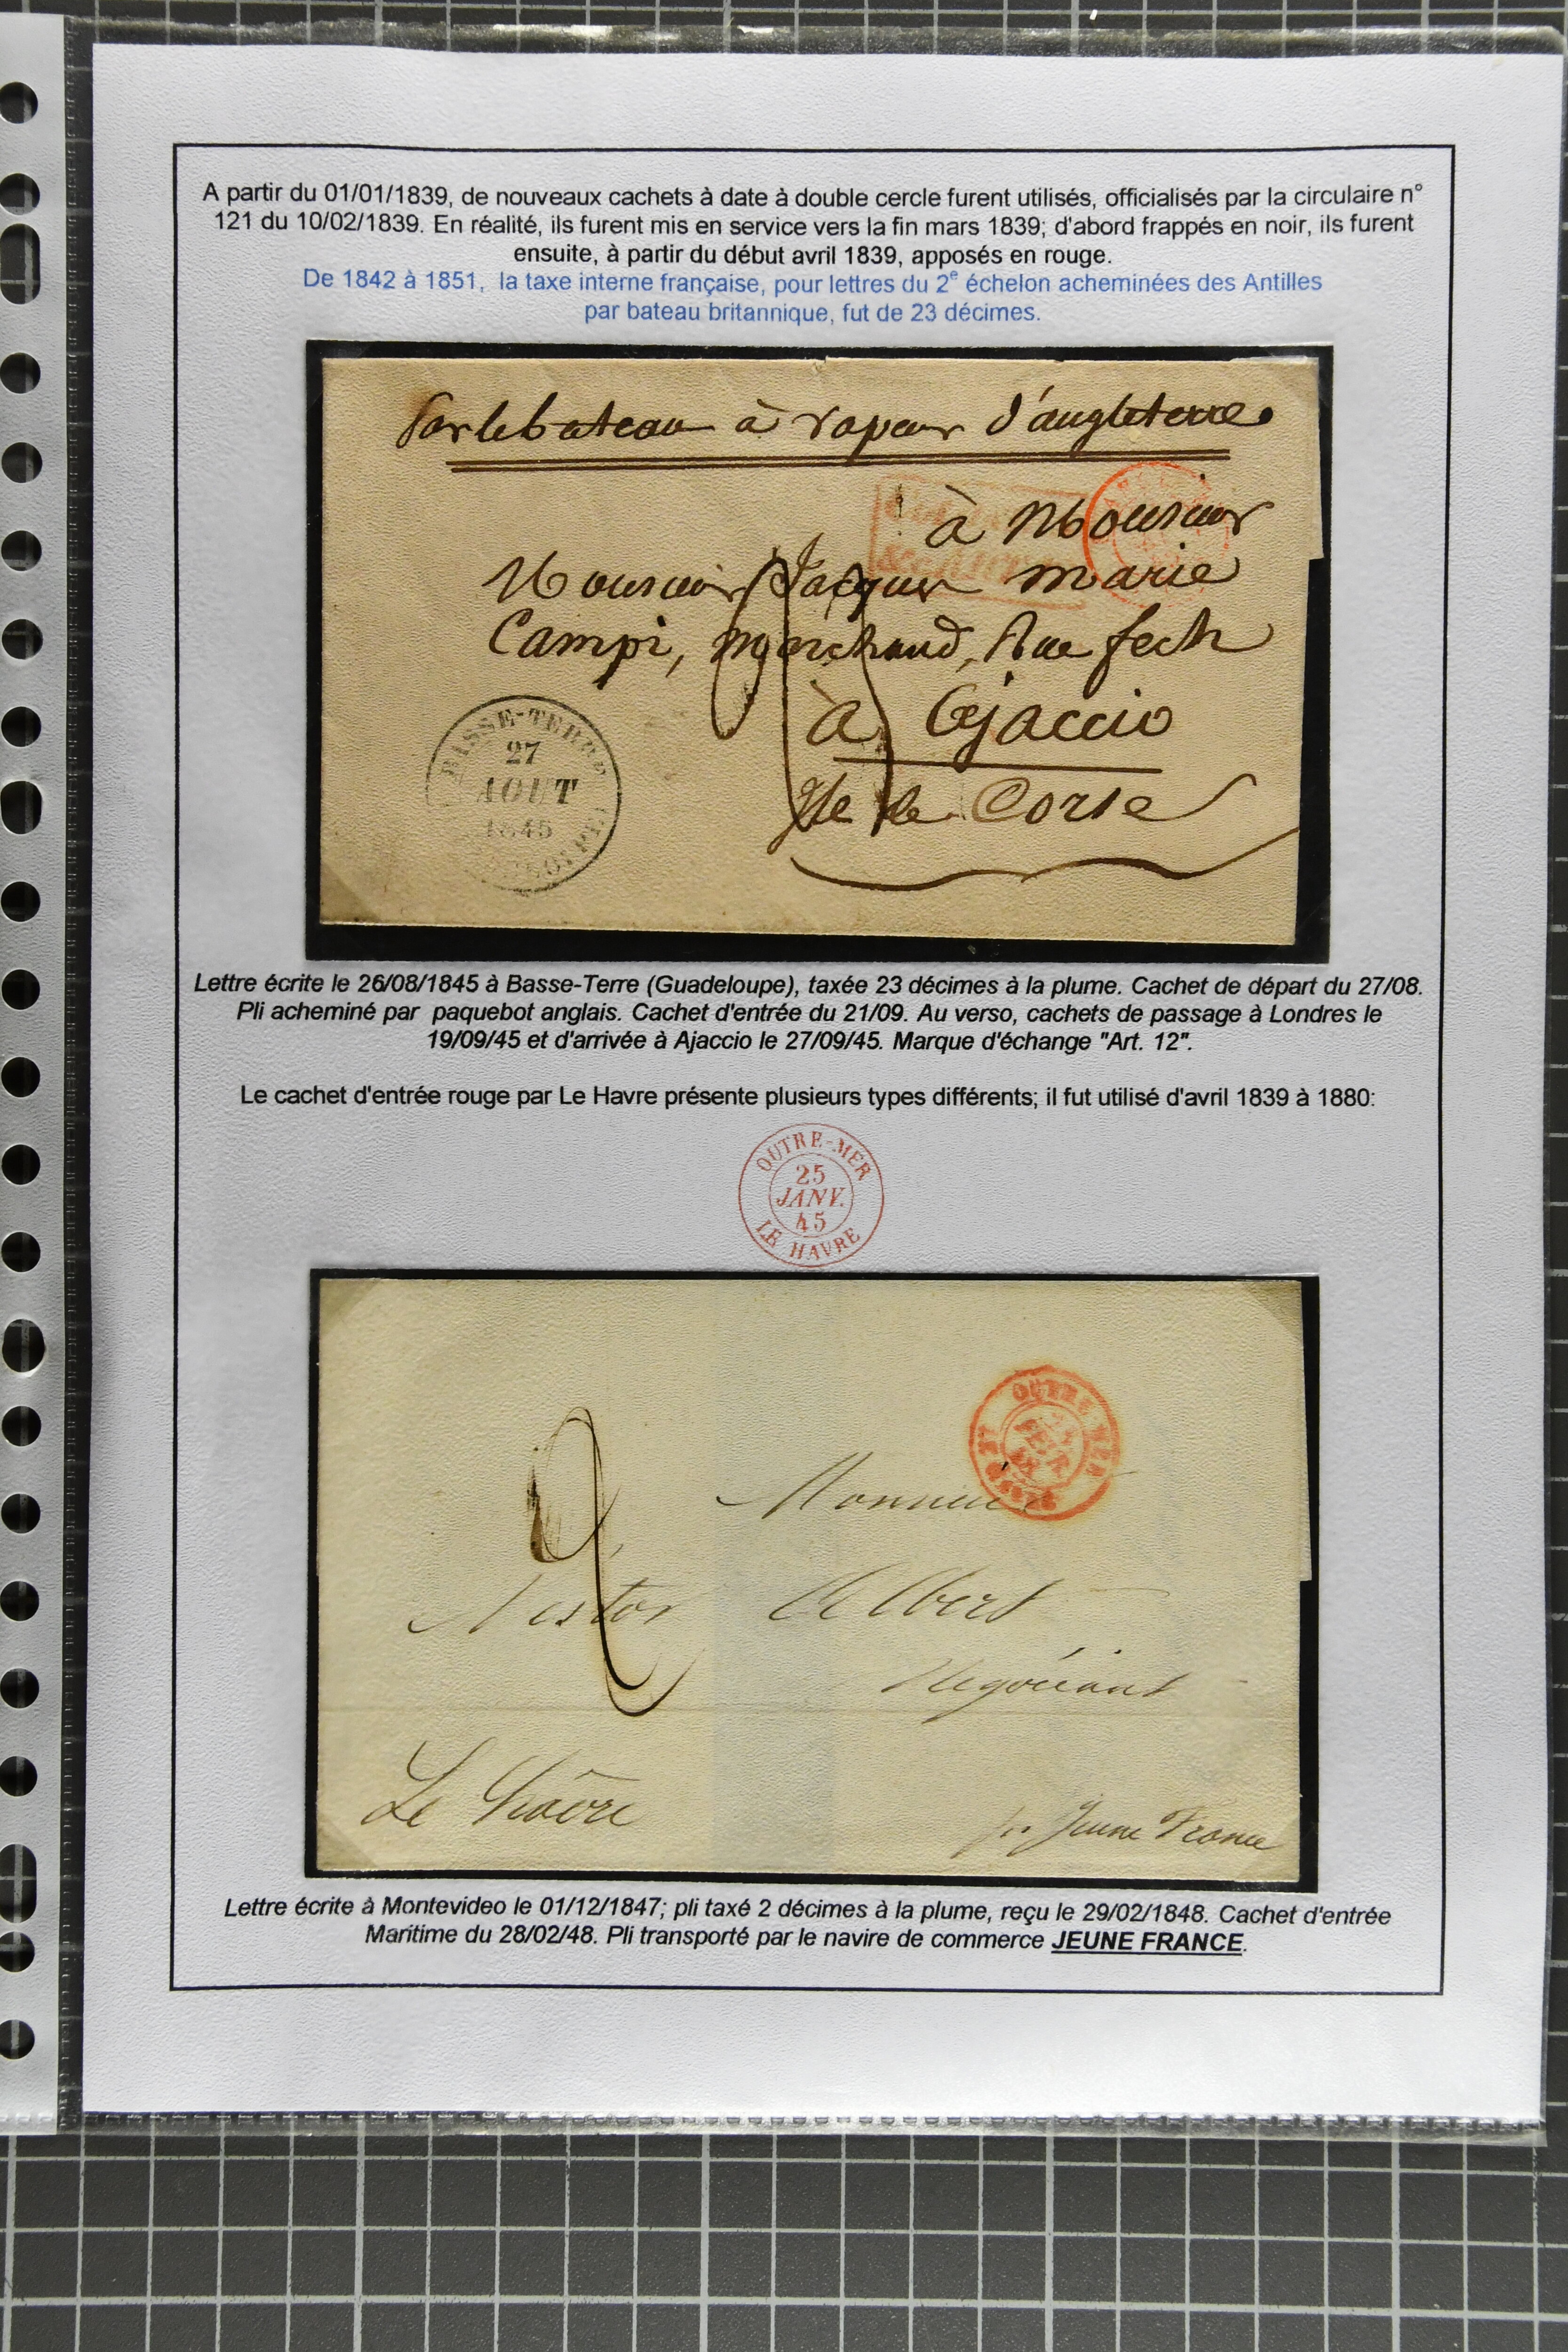 A partir du 01/01/1839, de nouveaux cachets à date à double cercle furent utilisés, officialisés par la circulaire n°
121 du 10/02/1839. En réalité, ils furent mis en service vers la fin mars 1839; d'abord frappés en noir, ils furent
ensuite, à partir du début avril 1839, apposés en rouge.
De 1842 à 1851, la taxe interne française, pour lettres du 2e échelon acheminées des Antilles
par bateau britannique, fut de 23 décimes.
Par le bateau à vapeur d'angleterre
à Monsieur
Monsieur Jacques marie
Campi, marchand, Rue fech
à ajaccio
Ile de Corse
BASSE-TERRE
27
AOUT
1845
Lettre écrite le 26/08/1845 à Basse-Terre (Guadeloupe), taxée 23 décimes à la plume. Cachet de départ du 27/08.
Pli acheminé par paquebot anglais. Cachet d'entrée du 21/09. Au verso, cachets de passage à Londres le
19/09/45 et d'arrivée à Ajaccio le 27/09/45. Marque d'échange "Art. 12".
Le cachet d'entrée rouge par Le Havre présente plusieurs types différents; il fut utilisé d'avril 1839 à 1880:
OUTRE-MER
25
JANV.
45
LE HAVRE
OUTRE MER
FEVR
48
LE HAVRE
2
Monsieur
Nestor Albert
Négociant
Le Havre
pr Jeune France
Lettre écrite à Montevideo le 01/12/1847; pli taxé 2 décimes à la plume, reçu le 29/02/1848. Cachet d'entrée
Maritime du 28/02/48. Pli transporté par le navire de commerce JEUNE FRANCE.